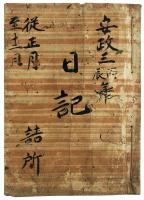 安政三丙辰年
日記
従正月
至十二月
詰所